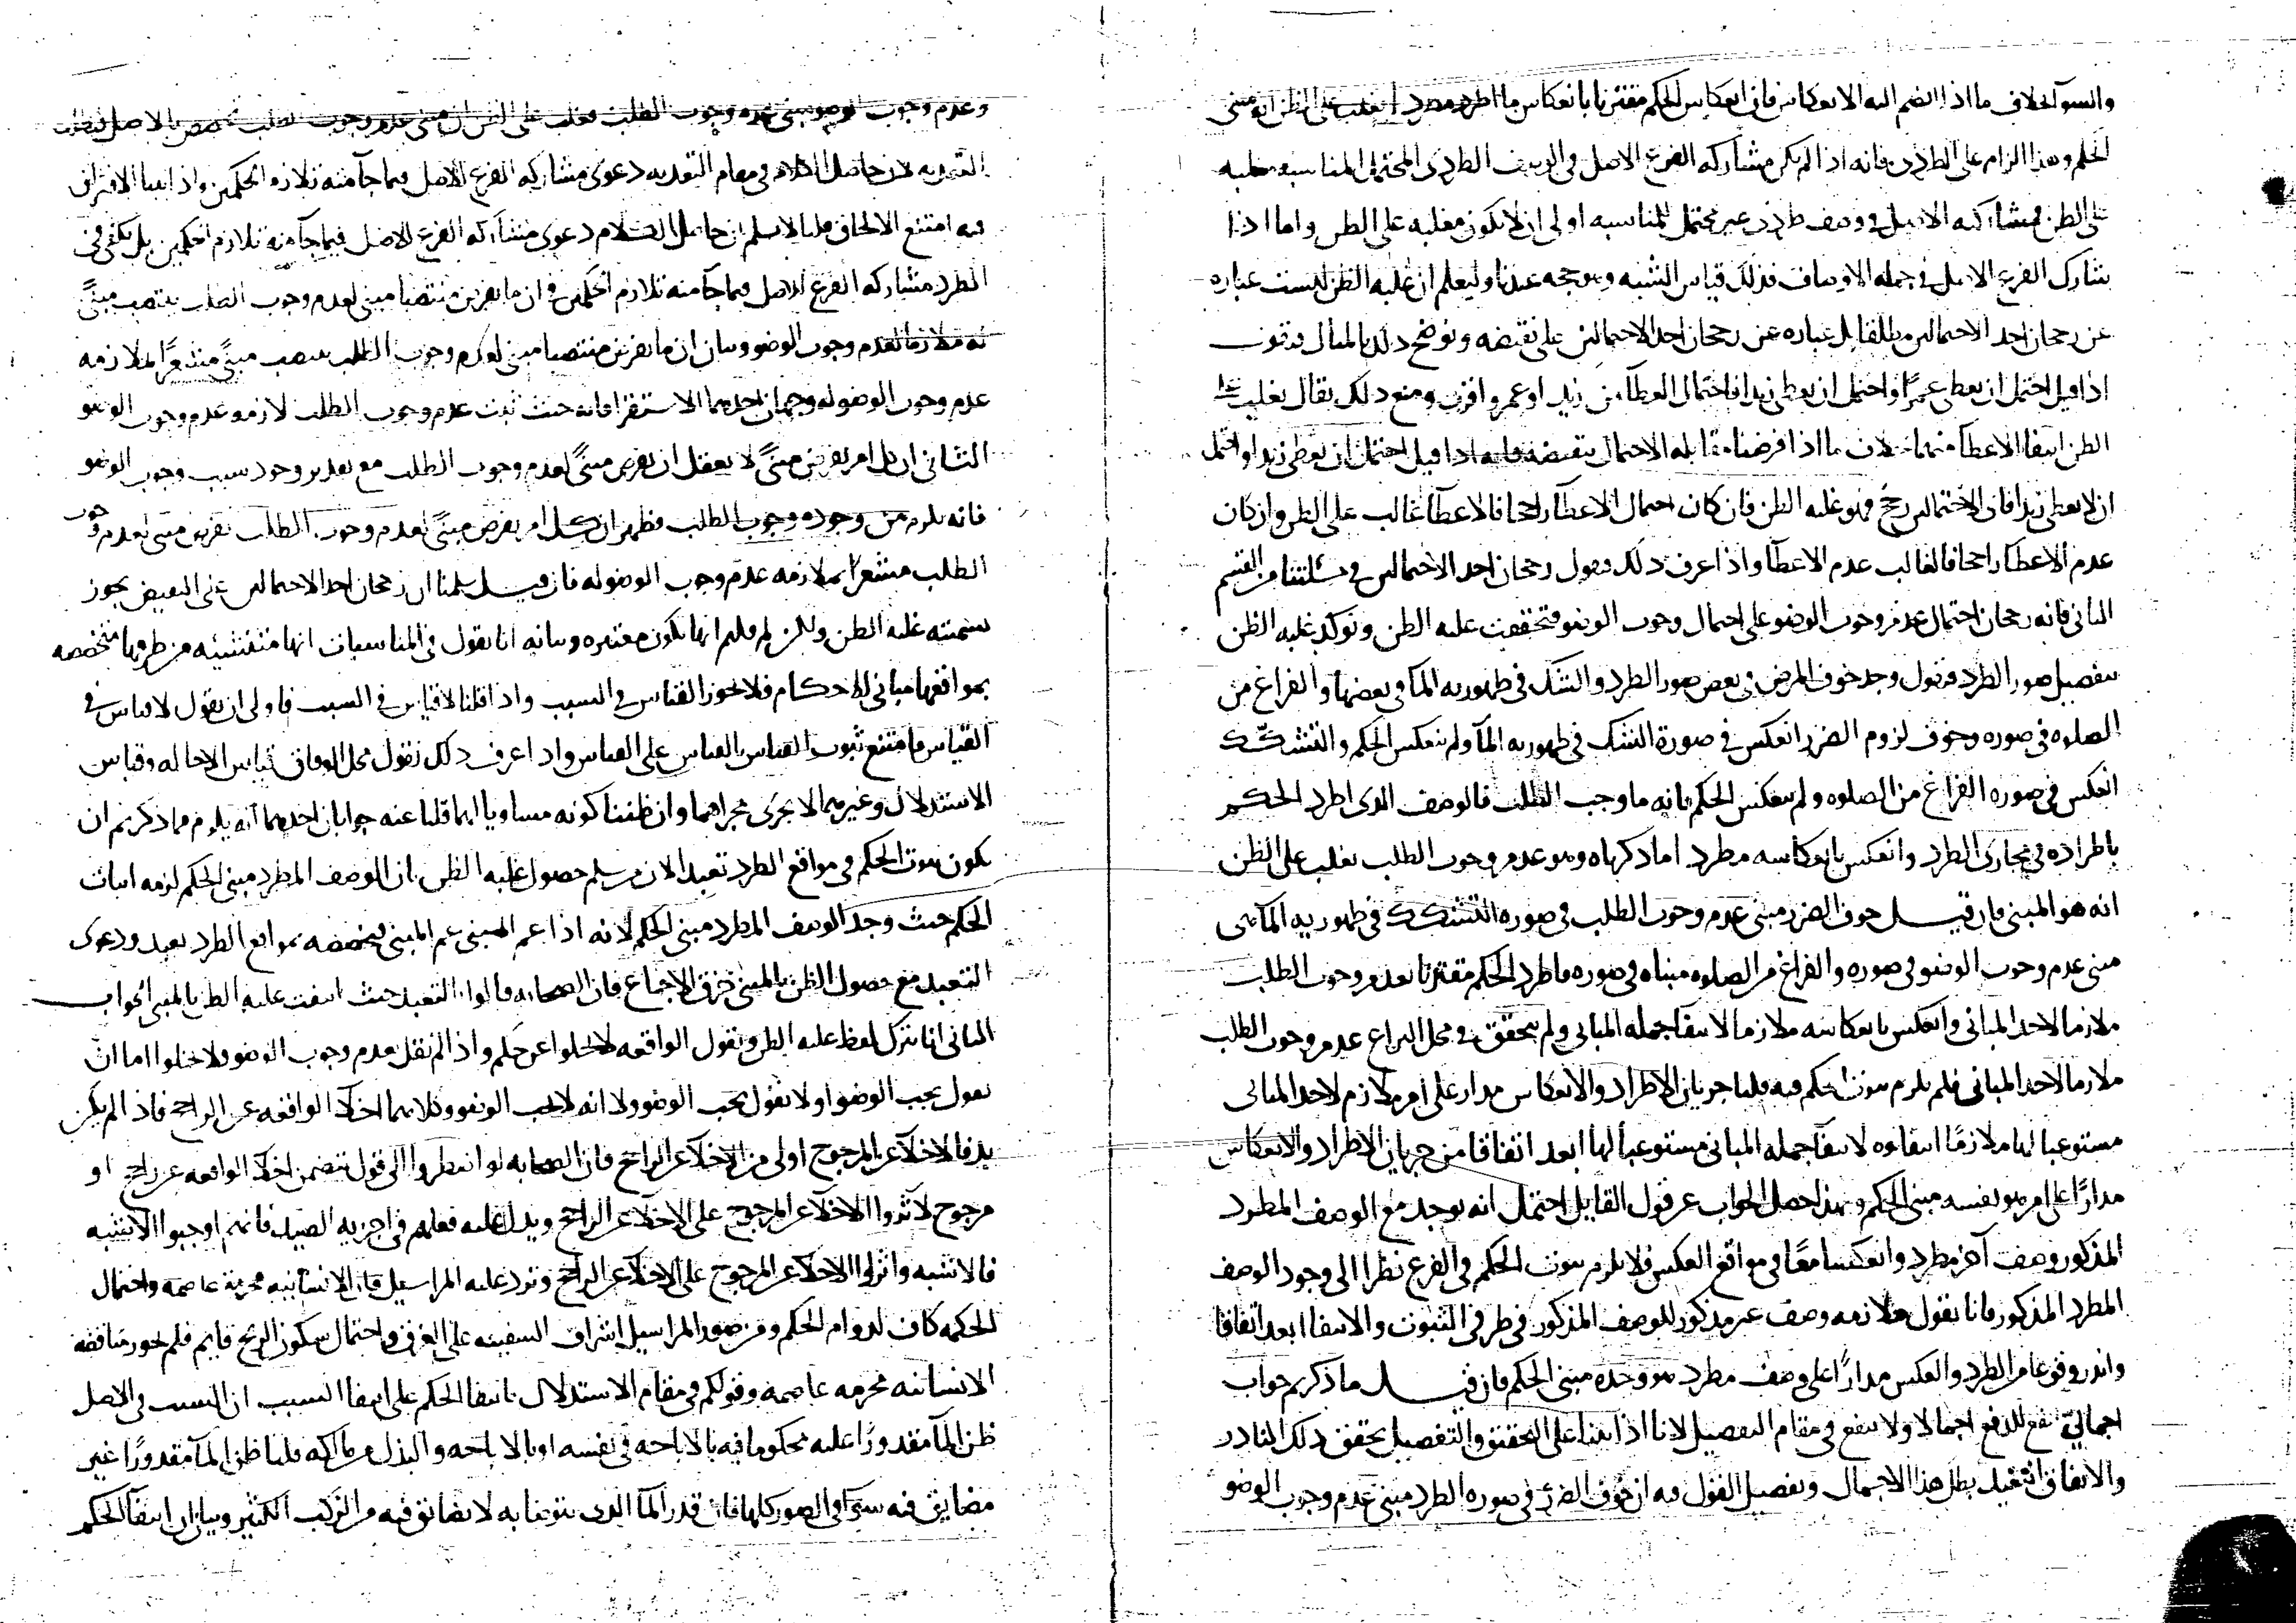 والسوآ بخلاف ما اذا انضم اليه الانعكاس فان انعكاس الحكم مقترنا بانعكاس ما اطرد يغلب على الظن انه مبنى
الحكم وهذا الزام على الطردى فانه اذا لم يكن مشاركه الفرع الاصل فى الوصف الطردى المحتمل المناسبه مغلبه
على الظن فمشاركته الاصل فى وصف طردى غير محتمل للمناسبه اولى ان لا يكون مغلبه على الظن واما اذا
شارك الفرع الاصل فى جمله الاوصاف فذلك قياس الشبه وهو حجه عندنا وليعلم ان غلبه الظن ليست عباره
عن رجحان احد الاحتمالين مطلقا بل عباره عن رجحان احد الاحتمالين على نقيضه ونوضح ذلك بالمثال فنقول
اذا قيل احتمل ان يعطى عمرًا واحتمل ان يعطى زيدا فاحتمال العطآ من زيد او عمرو اقرب ومع ذلك يقال يغلب على
الظن انتفا الاعطآ منهما بخلاف ما اذا فرضنا مقابله الاحتمال بنقيضه فانه اذا قيل احتمل ان يعطى زيدا واحتمل
ان لا يعطى زيدا فاى الاحتمالين رجح فهو غلبه الظن فان كان احتمال الاعطآ راجحا فالاعطآ غالب على الظن وان كان
عدم الاعطآ راجحا فالغالب عدم الاعطآ واذا عرف ذلك فنقول رجحان احد الاحتمالين فى مسئلتنا من القسم
الثانى فانه رجحان احتمال عدم وجوب الوضو على احتمال وجوب الوضو فتحققت غلبه الظن ونوكد غلبه الظن
بتفصيل صور الطرد فنقول وجد خوف المرض فى بعض صور الطرد والشك فى طهوريه المآ فى بعضها والفراغ من
الصلوه فى صوره وخوف لزوم الضرر انعكس فى صورة الشك فى طهوريه المآ ولم ينعكس الحكم والتشكك
انعكس فى صوره الفراغ من الصلوه ولم ينعكس الحكم فانه ما وجب الطلب فالوصف الذى اطرد الحكم
باطراده فى مجارى الطرد وانعكس بانعكاسه مطرد اما ذكرناه وهو عدم وجوب الطلب يغلب على الظن
انه هو المبنى فان قيل خوف الضرر مبنى عدم وجوب الطلب فى صوره التشكك فى طهوريه المآ
مبنى عدم وجوب الوضو فى صوره والفراغ من الصلوه مبناه فى صوره فاطرد الحكم مقترنا بعدم وجوب الطلب
ملازما لاحد المبانى وانعكس بانعكاسه ملازما لانتفآ جمله المبانى ولم يتحقق فى محل النزاع عدم وجوب الطلب
ملازما لاحد المبانى فلم يلزم ثبوت الحكم فيه قلنا جريان الاطراد والانعكاس مدار على امر ملازم لاحد المبانى
مستوعبا لها ملازمًا انتفاوه لانتفآ جمله المبانى مستوعبا لها ابعد اتفاقا من جريان الاطراد والانعكاس
مدارًا على امر هو نفسه مبنى الحكم وبهذا حصل الجواب عن قول القايل احتمل انه يوجد مع الوصف المطرد
المذكور وصف آخر مطرد وانعكسا معًا فى مواقع العكس فلا يلزم ثبوت الحكم فى الفرع نظرا الى وجود الوصف
المطرد المذكور فانا نقول ملازمه وصف غير مذكور للوصف المذكور فى طرفى الثبوت والانتفا ابعد اتفاقا
واندر وقوعا من الطرد والعكس مدارًا على وصف مطرد هو وحده مبنى الحكم فان قيل ما ذكرتم جواب
اجمالى ينفع للدفع اجمالا ولا ينفع فى مقام التفصيل لانا اذا على التحقيق والتفصيل يحقق ذلك النادر
والاتفاق البعيد بطل هذا الاجمال وتفصيل القول فيه ان خوف الضرر فى صوره الطرد مبنى عدم وجوب الوضو
وعدم وجوب الوضو مبنى عدم وجوب الطلب فغلب على الظن ان مبنى عدم وجوب الطلب مخصص بالاصل فبطلت
التعديه لان حاصل الكلام فى مقام التعديه دعوى مشاركه الفرع الاصل فيما جآ منه تلازم الحكمين واذا الافتراق
فيه امتنع الالحاق قلنا لا نسلم ان حاصل الكلام دعوى مشاركه الفرع للاصل فيما جآ منه تلازم الحكمين بل يكفى فى
المطرد مشاركه الفرع الاصل فيما جآ منه تلازم الحكمين فى ان ما يفرض منتصبا مبنى لعدم وجوب الطلب ينتصب مبنىً
ملازما لعدم وجوب الوضو وبيان ان ما يفرض منتصبا مبنى لعدم وجوب الطلب ينتصب مبنىً مشعرًا بملازمه
عدم وجوب الوضو له وجهان احدهما الاستقرا فانه حيث ثبت عدم وجوب الطلب لازمه عدم وجوب الوضو
الثانى ان كل امر يفرض مبنىً لا يعقل ان يفرض مبنىً لعدم وجوب الطلب مع تقدير وجود سبب وجوب الوضو
فانه يلزم من وجوده وجوب الطلب فظهر ان كل امر يفرض مبنىً لعدم وجوب الطلب يفرض مبنى لعدم وجوب
الطلب مشعرا بملازمه عدم وجوب الوضو له فان قيل سلمنا ان رجحان احد الاحتمالين على النقيض يجوز
تسميته غلبه الظن ولكن لم قلتم انها تكون معتبره وبيانه انا نقول فى المناسبات انها متفشيه من طرقها مختصه
بمواقعها مبانى للاحكام فلا يجوز القياس فى السبب واذا قلنا لا قياس فى السبب فاولى ان نقول لا قياس فى
القياس فامتنع ثبوت القياس بالقياس على القياس واذا عرف ذلك نقول محل الوفاق قياس الاخاله وقياس
الاستدلال وغيرهما لا يجرى مجراهما وان ظننا كونه مساويا لهما قلنا عنه جوابان احدهما انه يلزم مما ذكرتم ان
يكون ثبوت الحكم فى مواقع الطرد تعبدا لان من سلم حصول غلبه الظن بان الوصف المطرد مبنى الحكم لزمه اثبات
الحكم حيث وجد الوصف المطرد مبنى الحكم لانه اذا عم المبنى عم المبنى فتخصصه بمواقع الطرد تعبد ودعوى
التعبد مع حصول الظن بالمبنى خرق الاجماع فان الصحابه قالوا التعبد حيث انتفت غلبه الظن بالمبنى الجواب
الثانى انا نترك لفظ غلبه الظن ونقول الواقعه لا تخلوا عن حكم واذا لم نقل بعدم وجوب الوضو فلا يخلوا اما ان
نقول يجب الوضو او لا نقول يجب الوضو ولا انه لا يجب الوضو وكلاهما اخلآ الواقعه عن الراجح فاذا لم يكن
بد فالاخلآ عن المرجوح اولى من الاخلآ عن الراجح فان الصحابه لو اضطروا الى قول يتضمن اخلآ الواقعه عن راجح او
مرجوح لآثروا الاخلآ عن المرجوح على الاخلآ عن الراجح ويدل عليه فعلهم فى اجزيه الصيد فانهم اوجبوا الاشبه
فالاشبه وآثروا الاخلآ عن المرجوح على الاخلآ عن الراجح ونورد عليه المراسيل فان الانسانيه محرمة عاصمه واحتمال
الحكمه كاف لدوام الحكم ومن صور المراسيل اشراف السفينه على الغرق واحتمال سكون الريح قايم فلم يجوز مناقضه
الانسانيه محرمه عاصمه وقولكم فى مقام الاستدلال بانتفا الحكم على انتفا السبب ان السبب فى الاصل
ظن المآ مقدورًا عليه محكوما فيه بالاباحه فى نفسه او بالاباحه والبذل من مالكه قلنا ظن المآ مقدورًا غير
مضايق فيه سوآ فى الصور كلها فان قدر المآ الذى يتوضا به لا يضايق فيه من الركب الكثير وبيان ان انتفآ الحكم